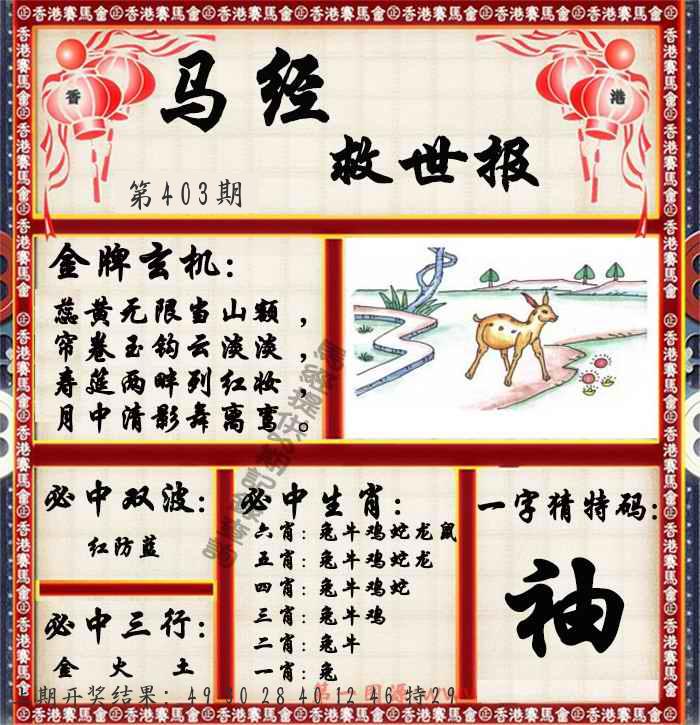 香港賽馬會 香港賽馬會 香港賽馬會 香港賽馬會 香港賽馬會 香港賽馬會 香港賽馬會
香 港
马经
救世报
第403期
金牌玄机：
蕊黄无限当山额，
帘卷玉钩云淡淡，
寿筵两畔列红妆，
月中清影舞离鸾。
必中双波：
红防蓝
必中三行：
金 火 土
必中生肖：
六肖：兔牛鸡蛇龙鼠
五肖：兔牛鸡蛇龙
四肖：兔牛鸡蛇
三肖：兔牛鸡
二肖：兔牛
一肖：兔
一字猜特码：
袖
期开奖结果：49 30 28 40 12 46 特29